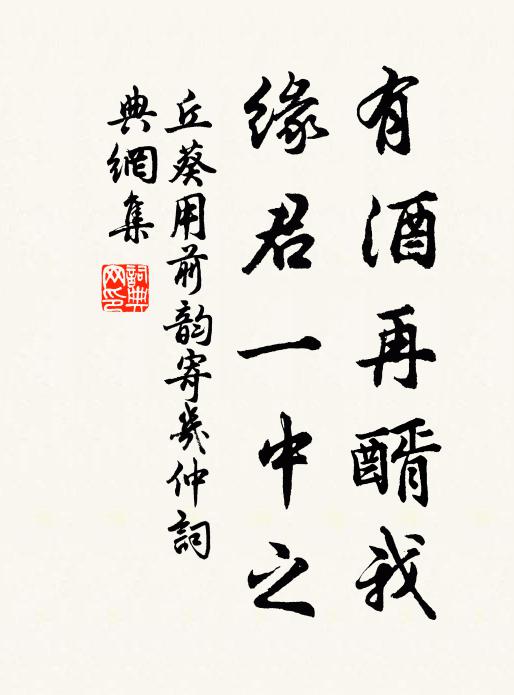 有酒再醑我
緣君一中之
丘葵用前韵寄幾仲詞
典網集
詞典网印